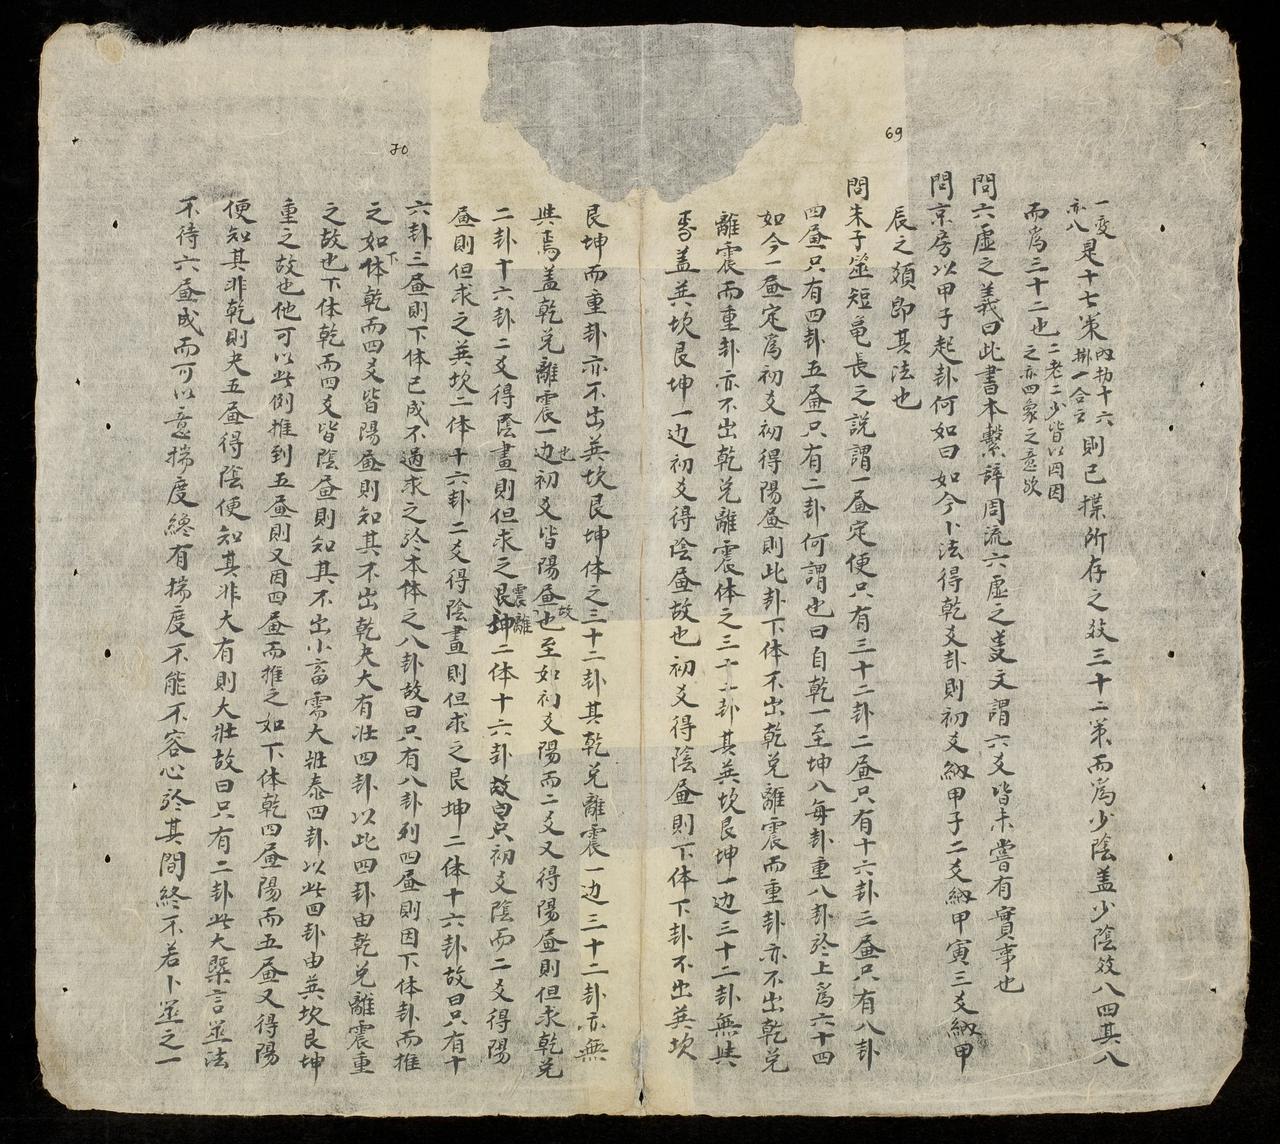 69
一变亦八是十七策內扐十六掛一合之則已揲所存之效三十二策而爲少陰盖少陰效八四其八
而爲三十二也二老二少皆以因因之亦四象之意欤
問六虛之義曰此書本繫辞周流六虛之变文謂六爻皆未嘗有實事也
問京房以甲子起卦何如曰如今卜法得乾爻卦則初爻納甲子二爻納甲寅三爻納甲
辰之類即其法也
問朱子筮短亀長之説謂一畫定便只有三十二卦二畫只有十六卦三畫只有八卦
四畫只有四卦五畫只有二卦何謂也曰自乾一至坤八每卦重八卦於上爲六十四
如今一畫定爲初爻初得陽畫則此卦下体不出乾兌離震而重卦亦不出乾兌
離震而重卦亦不出乾兌離震体之三十二卦其巽坎艮坤一边三十二卦無与
焉盖巽坎艮坤一边初爻得陰畫故也初爻得陰畫則下体下卦不出巽坎
艮坤而重卦亦不出巽坎艮坤体之三十二卦其乾兌離震一边三十二卦亦無
与焉盖乾兌離震一边也初爻皆陽畫故也至如初爻陽而二爻又得陽畫則但求乾兌
二卦十六卦二爻得陰畫則但求之艮坤震離二体十六卦故曰只初爻陰而二爻得陽
70
畫則但求之巽坎二体十六卦二爻得陰畫則但求之艮坤二体十六卦故曰只有十
六卦三畫則下体已成不過求之於本体之八卦故曰只有八卦列四畫則因下体卦而推
之如下体乾而四爻皆陽畫則知其不出乾夬大有壮四卦以此四卦由乾兌離震重
之故也下体乾而四爻皆陰畫則知其不出小畜需大壮泰四卦以此四卦由巽坎艮坤
重之故也他可以此倒推到五畫則又因四畫而推之如下体乾四畫陽而五畫又得陽
便知其非乾則夬五畫得陰便知其非大有則大壯故曰只有二卦此大槩言筮法
不待六畫成而可以意揣度終有揣度不能不容心於其間終不若卜筮之一